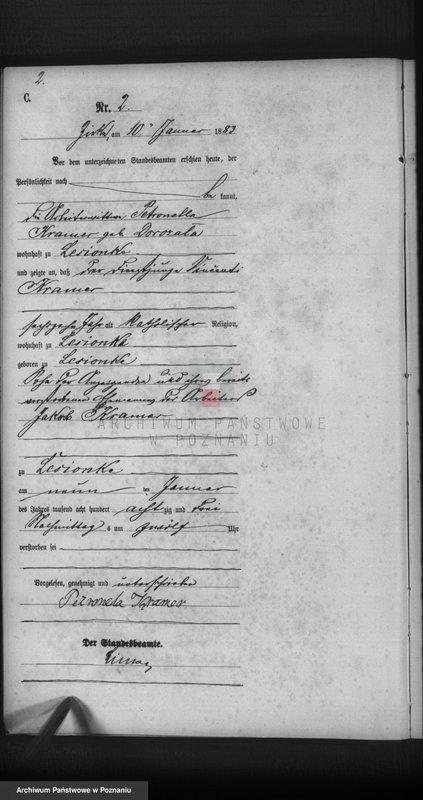 2.
C.
Nr. 2.
Zirke, am 10ten Januar 1883
Vor dem unterzeichneten Standesbeamten erschien heute, der
Persönlichkeit nach
be kannt,
die Arbeiterwittwe Petronella
Kramer geb. Dorozala
wohnhaft zu Lesionke
und zeigte an, daß der Dienstjunge Vincenti
Kramer
sechszehn Jahr alt katholischer Religion,
wohnhaft zu Lesionke
geboren zu Lesionke
Sohn der Anzeigenden und ihres bereits
verstorbenen Ehemannes des Arbeiters
Jakob Kramer
ARCHIWUM PAŃSTWOWE
W POZNANIU
zu Lesionke
am neun ten Januar
des Jahres tausend acht hundert achtzig und drei
Nachmittags um zwölf Uhr
verstorben sei
Vorgelesen, genehmigt und unterschrieben
Petronela Kramer
Der Standesbeamte.
Archiwum Państwowe w Poznaniu